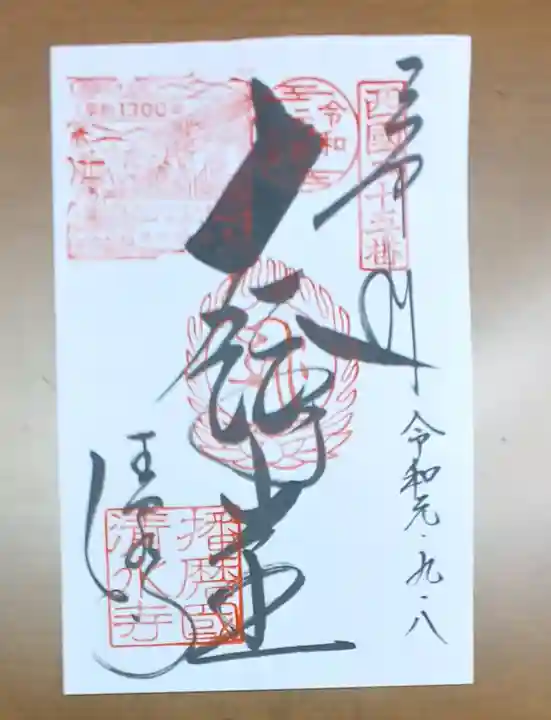 西國二十五番
奉拝
令和元・九・八
令和
大講堂
1300年
清水寺
播磨國
清水寺